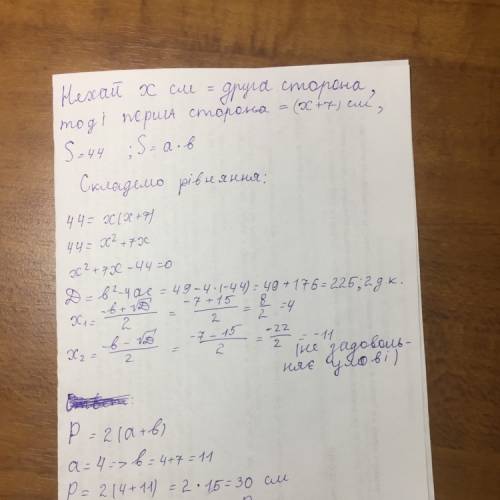 Нехай х см = друга сторона,
тоді перша сторона = (х+7) см,
S=44 ; S=a·b
Складемо рівняння:
44= x(x+7)
44= x²+7x
x²+7x-44=0
D= b²-4ac = 49-4·(-44)= 49+176=225; 2 д.к.
x₁= (-b+√D)/2 = (-7+15)/2 = 8/2 =4
x₂= (-b-√D)/2 = (-7-15)/2 = -22/2 = -11
(не задоволь-
няє умові)
P = 2(a+b)
a=4=>b=4+7=11
P=2(4+11) =2·15=30 см